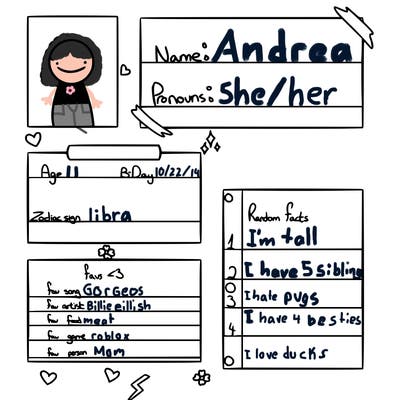 Name: Andrea
Pronouns: She/her
Age 11 B-Day 10/22/14
Zodiac sign libra
favs <3
fav song GOrgeos
fav artist Billie eillish
fav food meat
fav game roblox
fav person Mom
Random facts
1 I'm tall
2 I have 5 sibling
3 I hate pugs
4 I have 4 besties
I love ducks